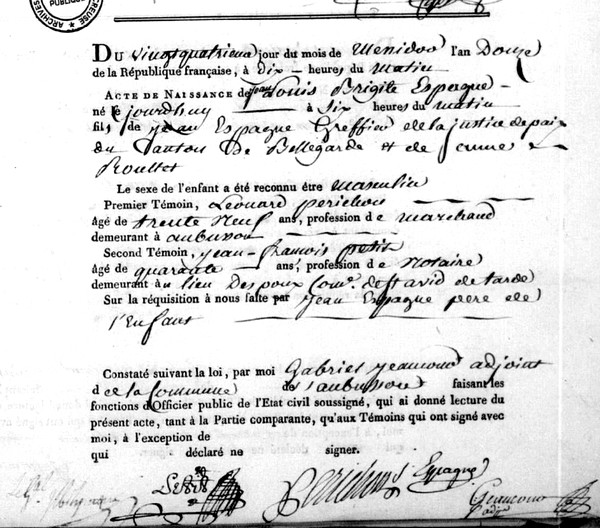 CREUSE
ARCHIVES
PUBLIQUE
DU vingtquatrieme jour du mois de Messidor l'an Douze
de la République française, à dix heures du matin
ACTE DE NAISSANCE de jean Louis Brigite Espagne
né le jourdhuy à Six heures du matin
fils de jean Espagne Greffier de la justice de paix
du Canton De Bellegarde et de
Roullet
Le sexe de l'enfant a été reconnu être masculin
Premier Témoin, Léonard perichon
âgé de trente neuf ans, profession de marchand
demeurant à aubusson
Second Témoin, jean-françois petit
âgé de quarante ans, profession de Notaire
demeurant au lieu Des poux Com.e de St avid de tarde
Sur la réquisition à nous faite par jean Espagne pere de
l'Enfant
Constaté suivant la loi, par moi Gabriel jeamond adjoint
d de la Commune de d'aubusson faisant les
fonctions d'Officier public de l'Etat civil soussigné, qui ai donné lecture du
présent acte, tant à la Partie comparante, qu'aux Témoins qui ont signé avec
moi, à l'exception de
qui déclaré ne signer.
Petit Perichon Espagne
adj